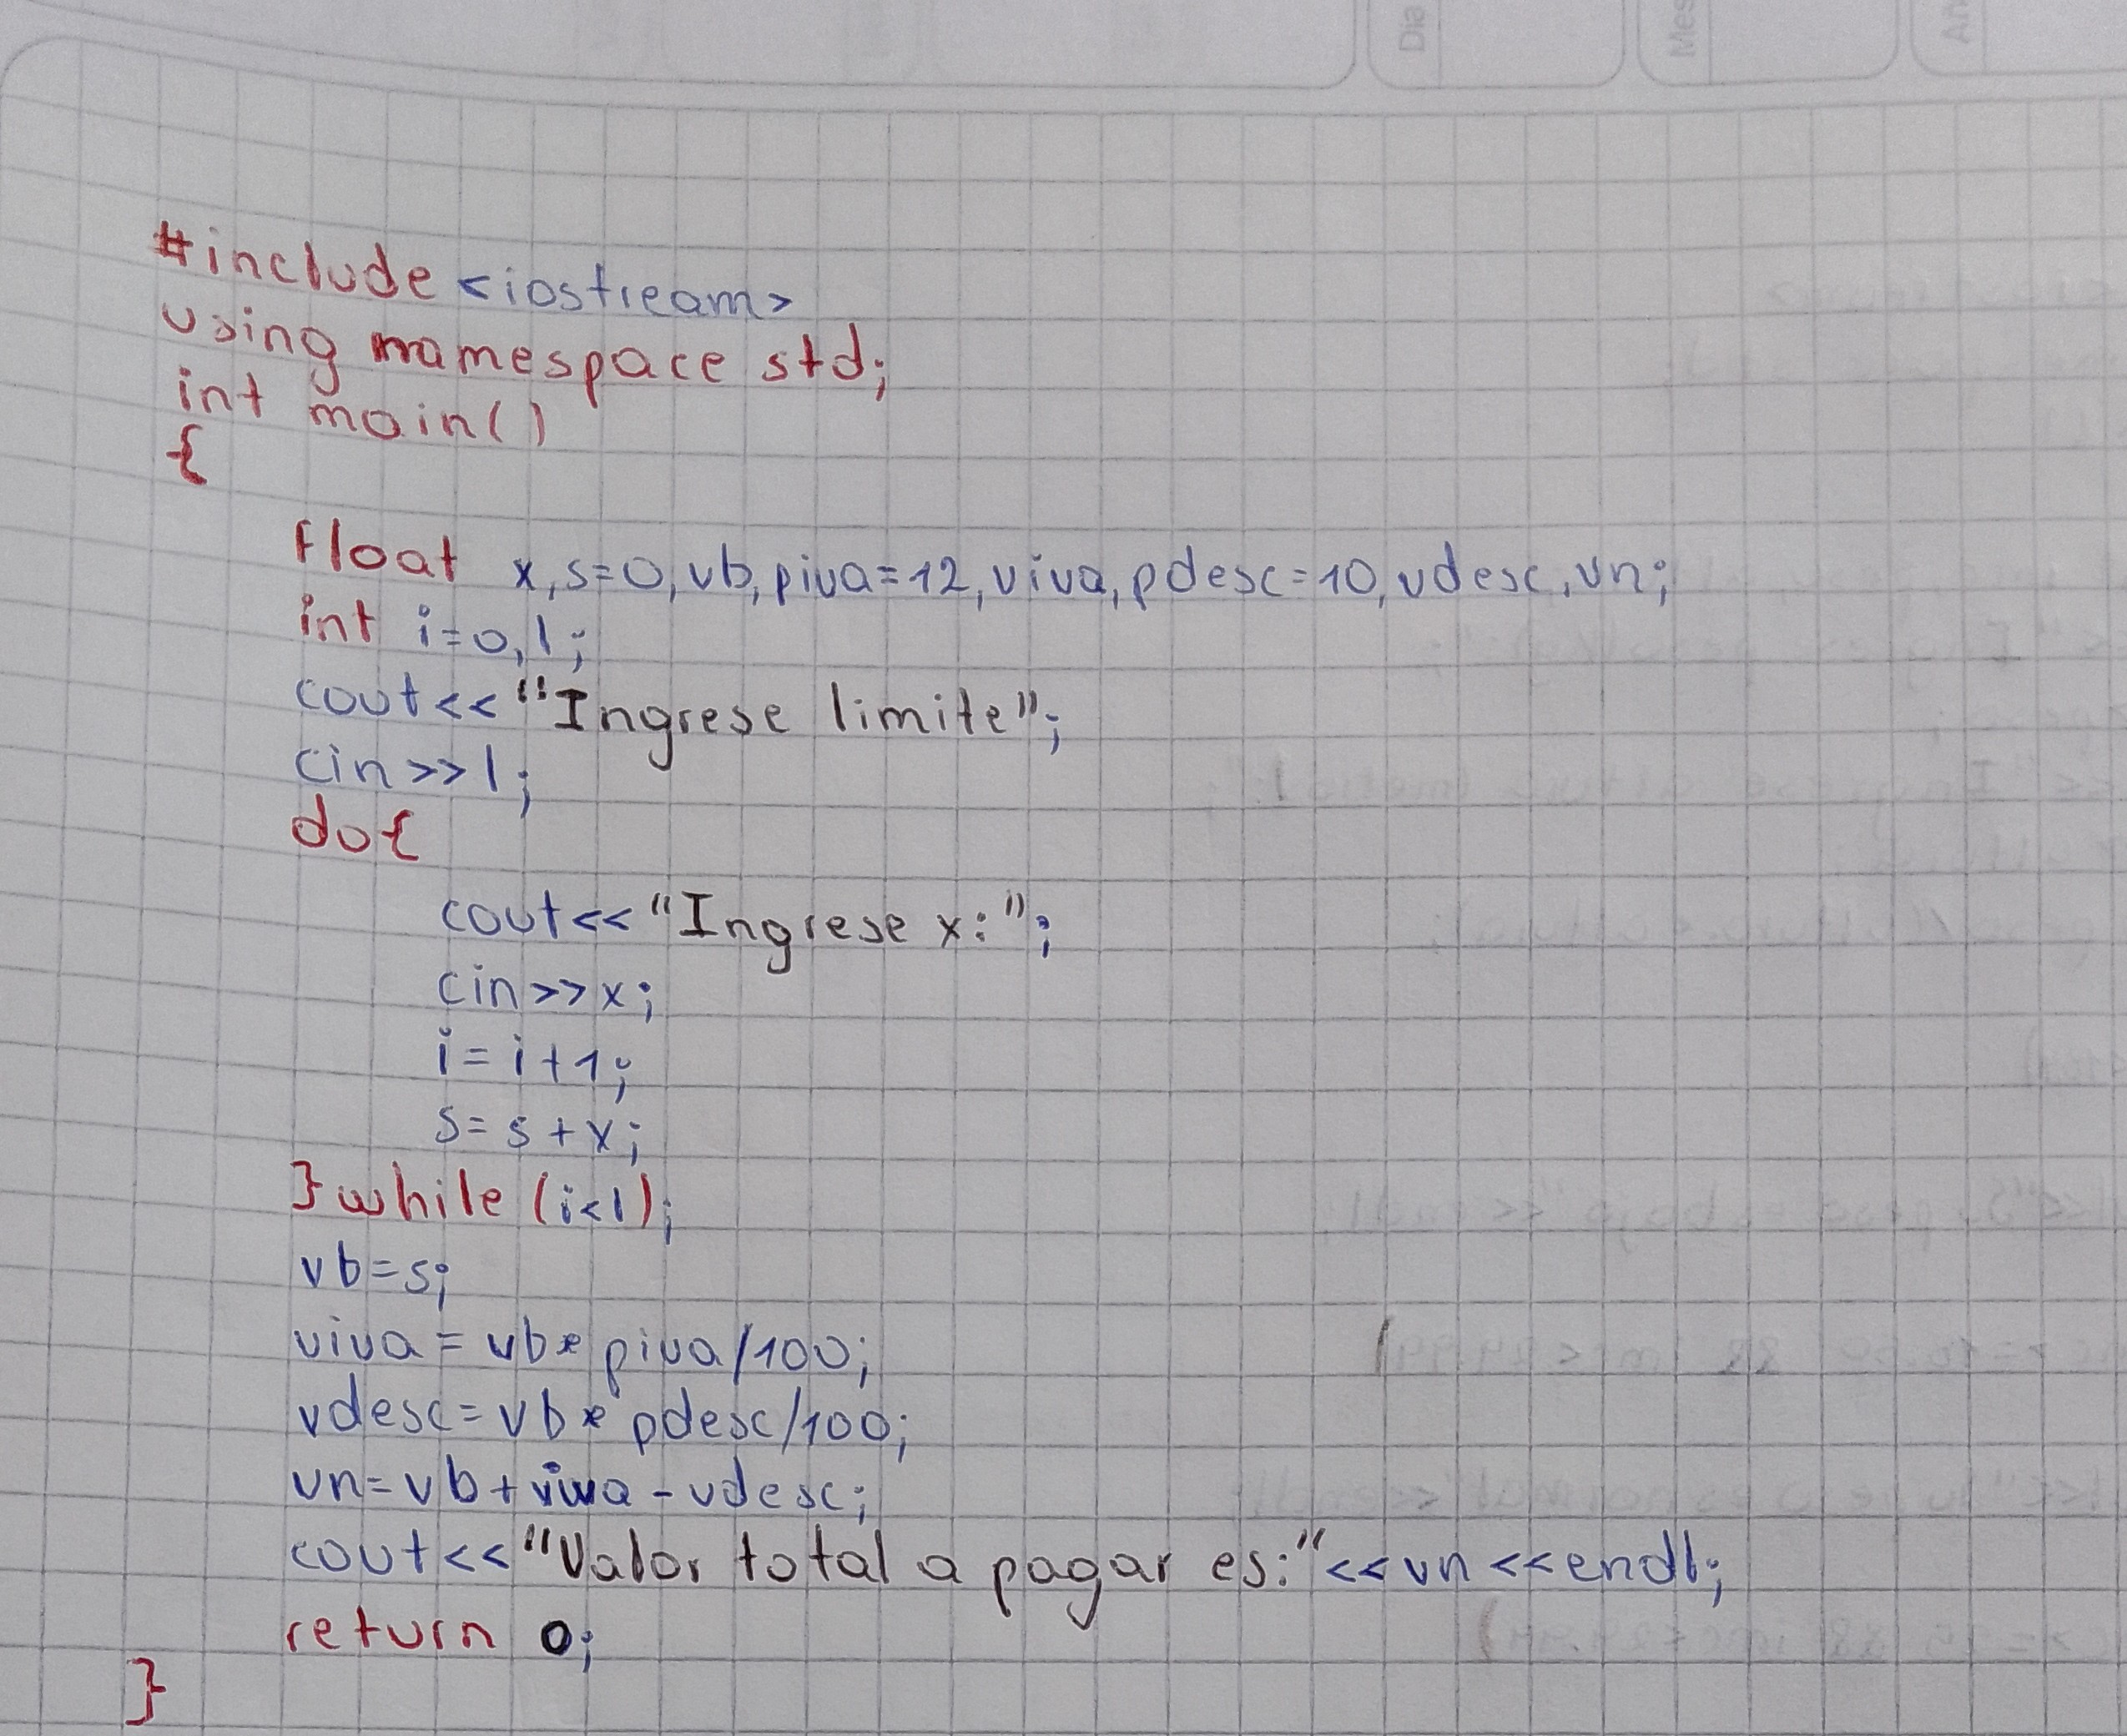 Dia Mes
#include <iostream>
using namespace std;
int main()
{
float x,s=0,vb,piva=12,viva,pdesc=10,vdesc,vn;
int i=0,l;
cout<<"Ingrese limite";
cin>>l;
do{
cout<<"Ingrese x:";
cin>>x;
i=i+1;
s=s+x;
}while(i<l);
vb=s;
viva=vb*piva/100;
vdesc=vb*pdesc/100;
vn=vb+viva-vdesc;
cout<<"Valor total a pagar es:"<<vn<<endl;
return 0;
}